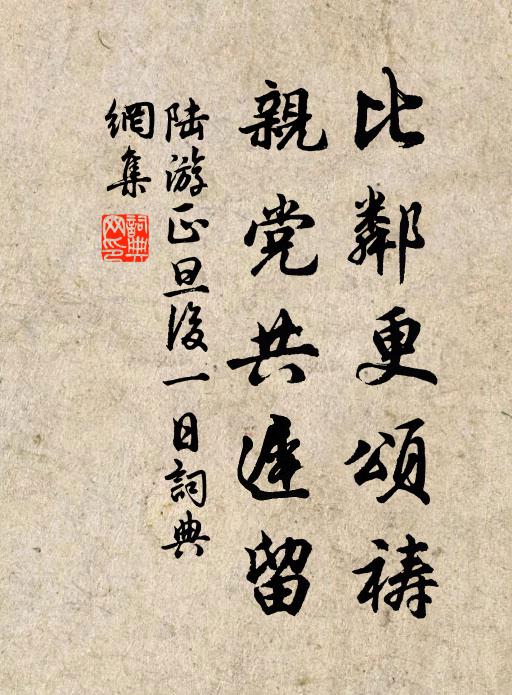 比鄰更頌禱
親党共遲留
陆游正旦後一日詞典
網集
詞典網印